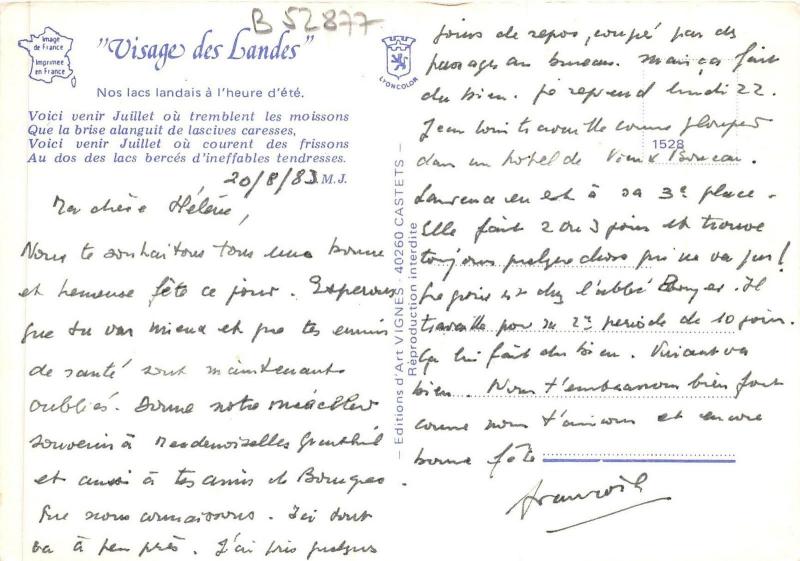 B 52877
Image
de France
Imprimée
en France
"Visage des Landes"
LYONCOLOR
Nos lacs landais à l'heure d'été.
Voici venir Juillet où tremblent les moissons
Que la brise alanguit de lascives caresses,
Voici venir Juillet où courent des frissons
Au dos des lacs bercés d'ineffables tendresses.
M.J.
20/8/83
Ma chère Hélène,
Nous te souhaitons tous une bonne
et heureuse fête ce jour. Espérons
que tu vas mieux et que tes ennuis
de santé sont maintenant
oubliés. Donne notre meilleur
souvenir à Mesdemoiselles
et aussi à tes amis de Bourges
que nous connaissons. Ici tout
va à peu près. J'ai pris quelques
jours de repos, coupé par des
passages au bureau. mais ça fait
du bien. je reprend lundi 22.
Jean Louis travaille comme plongeur
dans un hôtel de Vieux Boucau.
Laurence en est à sa 3e place.
Elle fait 2 ou 3 jours et trouve
toujours quelque chose qui ne va pas!
est chez l'abbé Il
travaille pour sa 2e période de 10 jours.
Ça lui fait du bien. Vincent va
bien. Nous t'embrassons bien fort
comme nous t'aimons et encore
bonne fête
1528
— Editions d'Art VIGNES - 40260 CASTETS —
Reproduction interdite